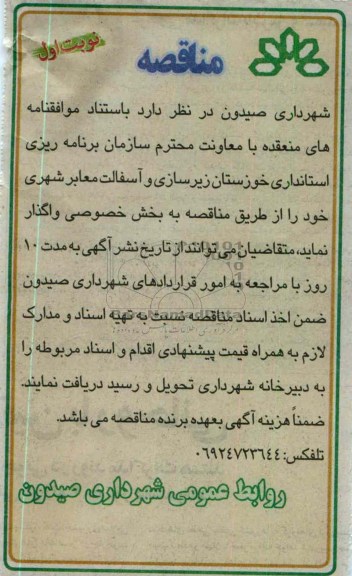 نوبت اول
مناقصه
شهرداری صیدون در نظر دارد باستناد موافقنامه
های منعقده با معاونت محترم سازمان برنامه ریزی
استانداری خوزستان زیرسازی و آسفالت معابر شهری
خود را از طریق مناقصه به بخش خصوصی واگذار
نماید، متقاضیان می توانند از تاریخ نشر آگهی به مدت ۱۰
روز با مراجعه به امور قراردادهای شهرداری صیدون
ضمن اخذ اسناد مناقصه نسبت به تهیه اسناد و مدارک
لازم به همراه قیمت پیشنهادی اقدام و اسناد مربوطه را
به دبیرخانه شهرداری تحویل و رسید دریافت نمایند.
ضمناً هزینه آگهی بعهده برنده مناقصه می باشد.
تلفکس: ۰۶۹۲۴۷۲۳۶۴۴
روابط عمومی شهرداری صیدون